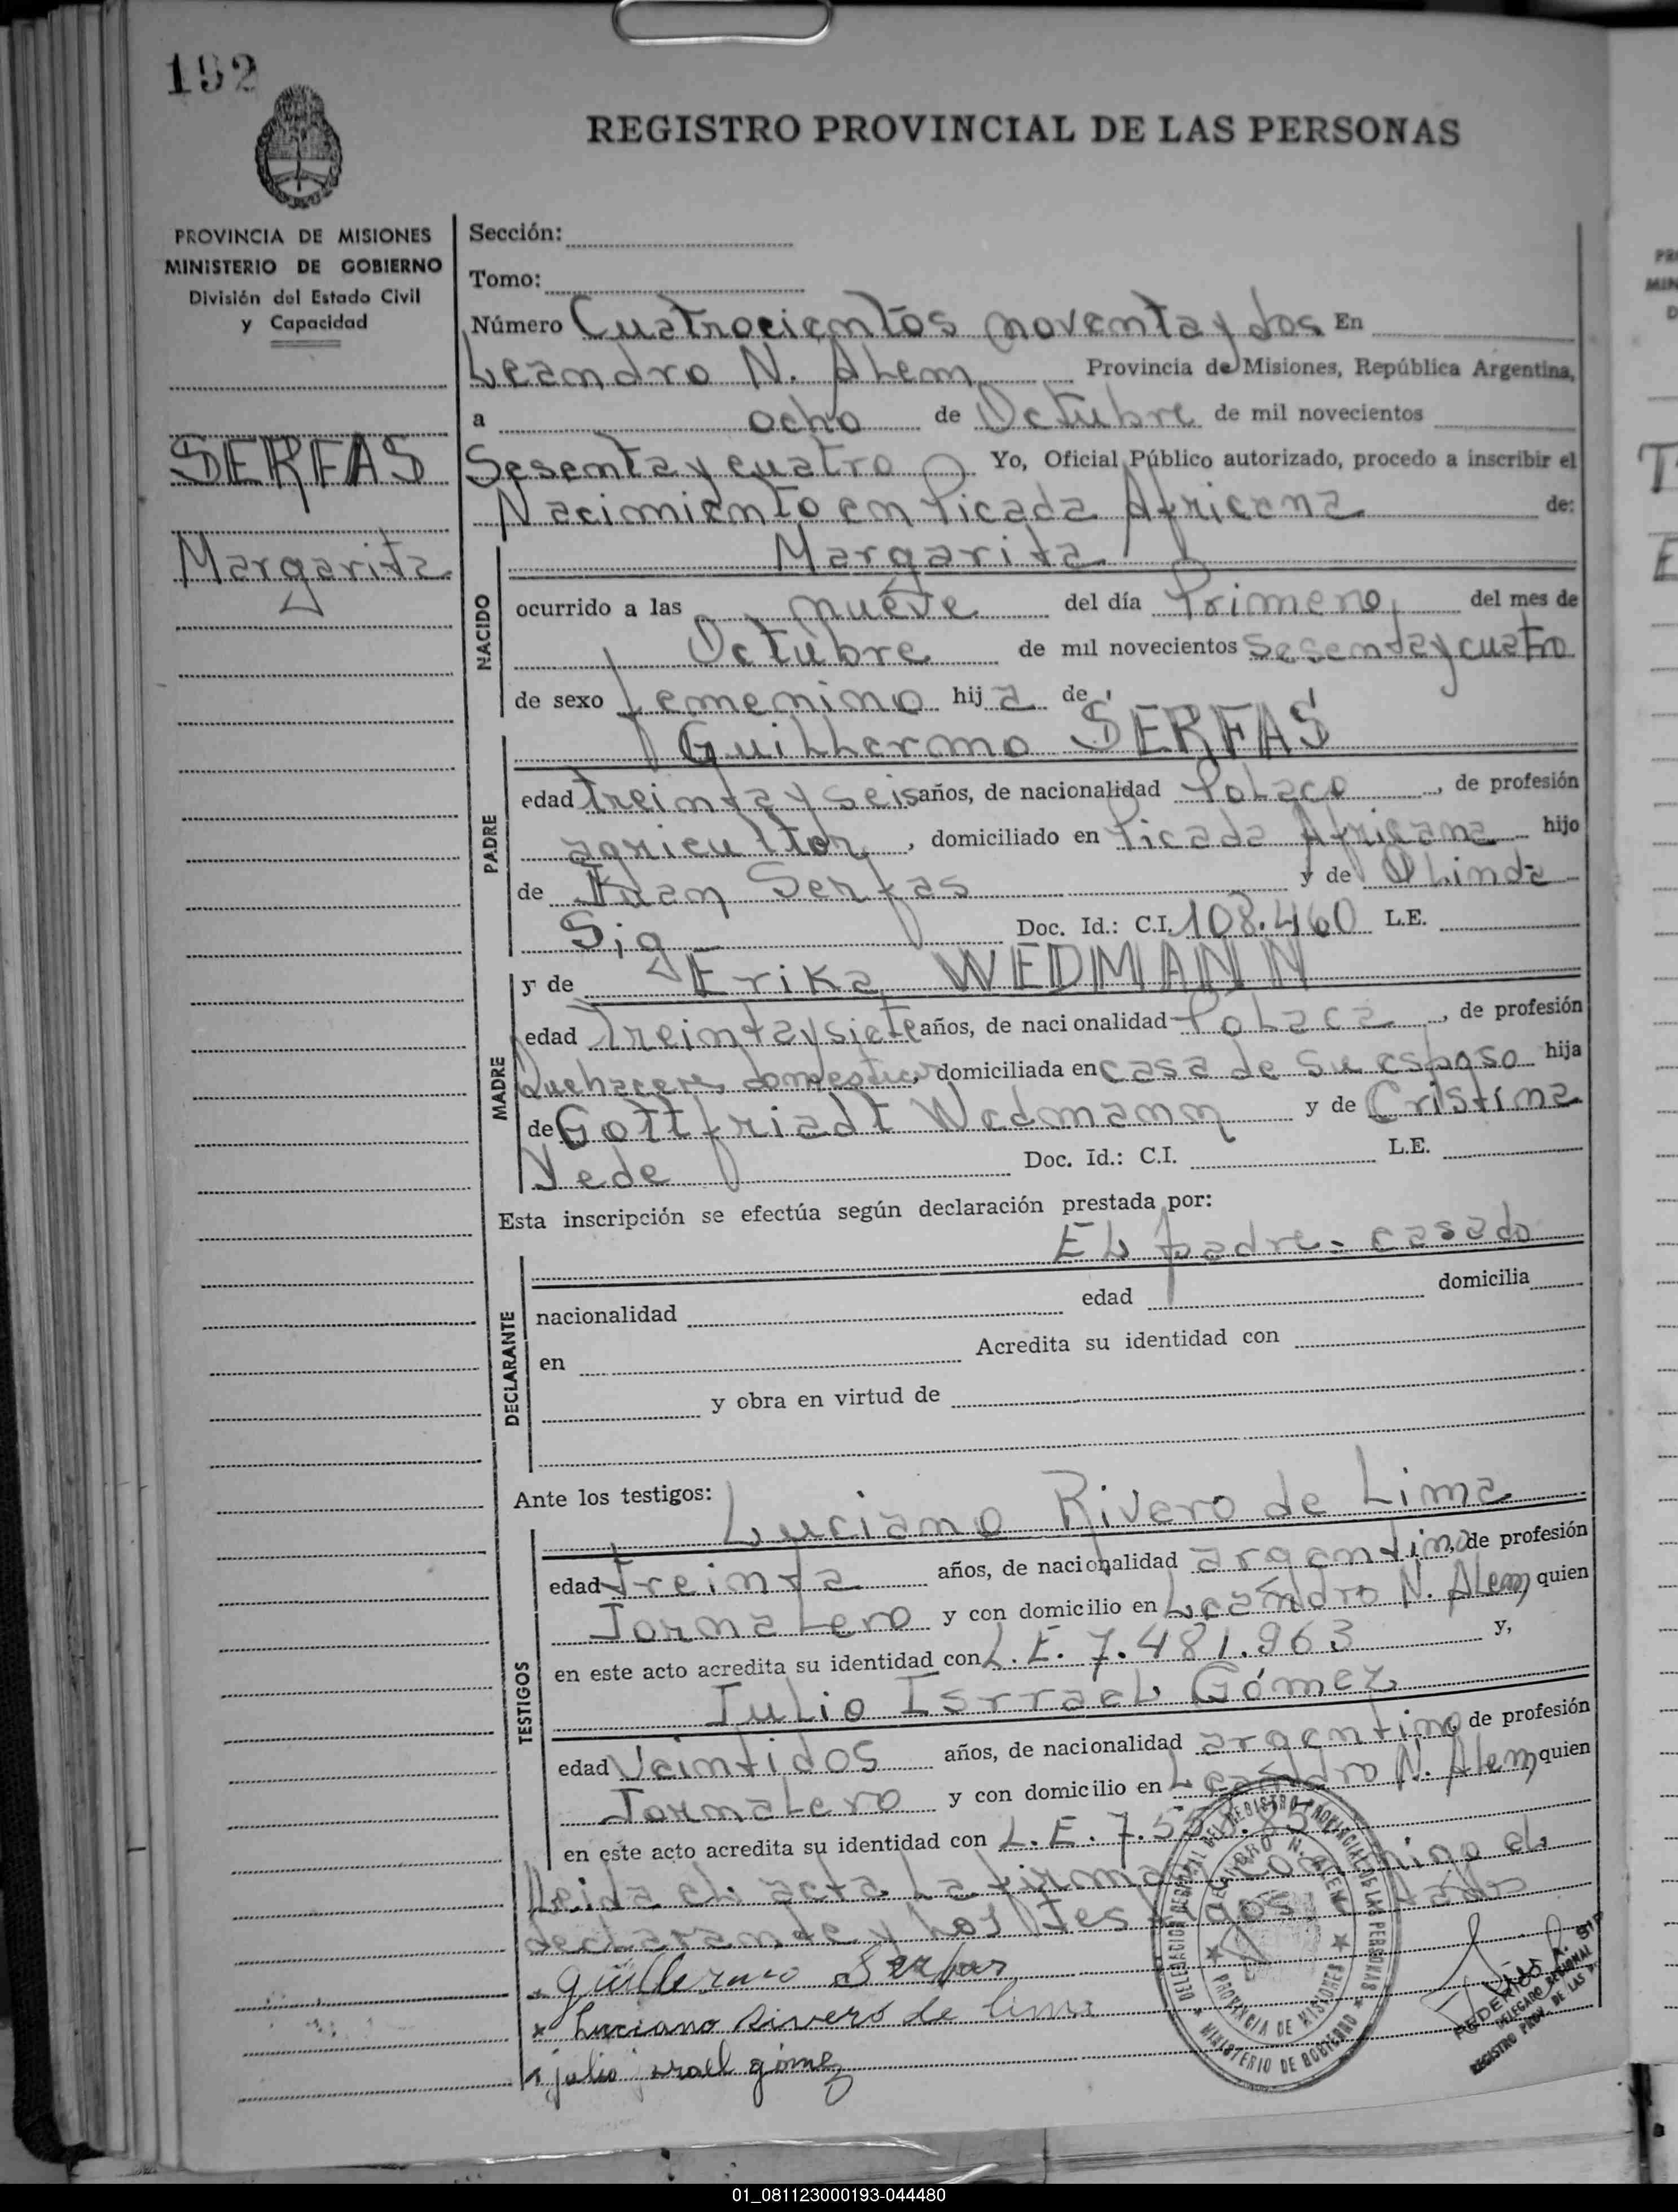 192
REGISTRO PROVINCIAL DE LAS PERSONAS
PROVINCIA DE MISIONES
MINISTERIO DE GOBIERNO
División del Estado Civil
y Capacidad
SERFAS
Margarita
Sección:
Tomo:
Número Cuatrocientos noventa y dos En
Leandro N. Alem Provincia de Misiones, República Argentina,
a ocho de Octubre de mil novecientos
Sesenta y cuatro Yo, Oficial Público autorizado, procedo a inscribir el
Nacimiento en Picada Africana de:
NACIDO
Margarita
ocurrido a las nueve del día Primero del mes de
Octubre de mil novecientos Sesenta y cuatro
de sexo femenino hija de
PADRE
Guillermo SERFAS
edad treinta y seis años, de nacionalidad Polaco, de profesión
agricultor, domiciliado en Picada Africana hijo
de Juan Serfas y de Olinda
Sig Doc. Id.: C.I. 108.460 L.E.
MADRE
y de Erika WEDMANN
edad Treinta y siete años, de nacionalidad Polaca, de profesión
Quehaceres domesticos, domiciliada en casa de su esposo hija
de Gottfriadt Wedmann y de Cristina
Doc. Id.: C.I. L.E.
Esta inscripción se efectúa según declaración prestada por:
El padre - casado
DECLARANTE
nacionalidad edad domicilia
en Acredita su identidad con
y obra en virtud de
Ante los testigos:
Luciano Rivero de Lima
TESTIGOS
edad treinta años, de nacionalidad argentino, de profesión
Jornalero y con domicilio en Leandro N. Alem quien
en este acto acredita su identidad con L.E. 7.481.963 y,
Julio Isrrael Gómez
edad Veintidos años, de nacionalidad argentino de profesión
Jornalero y con domicilio en Leandro N. Alem quien
en este acto acredita su identidad con L.E.
Leida el acta la firman conmigo el
declarante y los testigos
Guillermo Serfas
x Luciano Rivero de lima
x julio israel gómez
DEL REGISTRO PROVINCIAL DE LAS PERSONAS
LEANDRO N. ALEM
PROVINCIA DE MISIONES
MINISTERIO DE GOBIERNO
DELEGADO REGIONAL
01_081123000193-044480